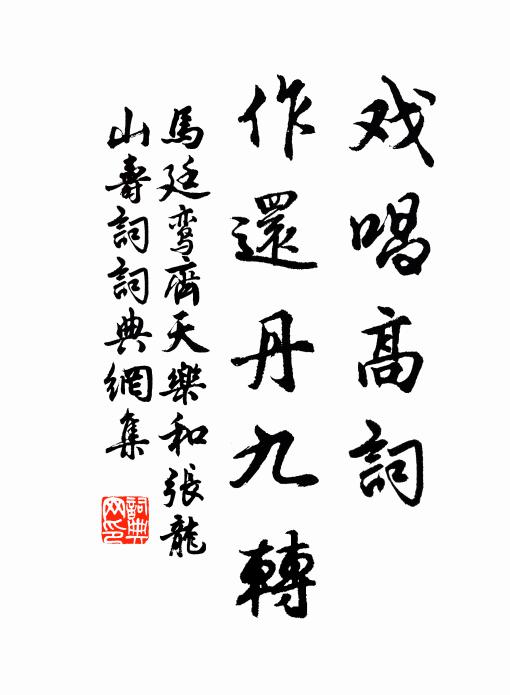 戏唱高詞
作還丹九轉
馬廷鸾齊天樂和張龍
山壽詞詞典網集
詞典网印